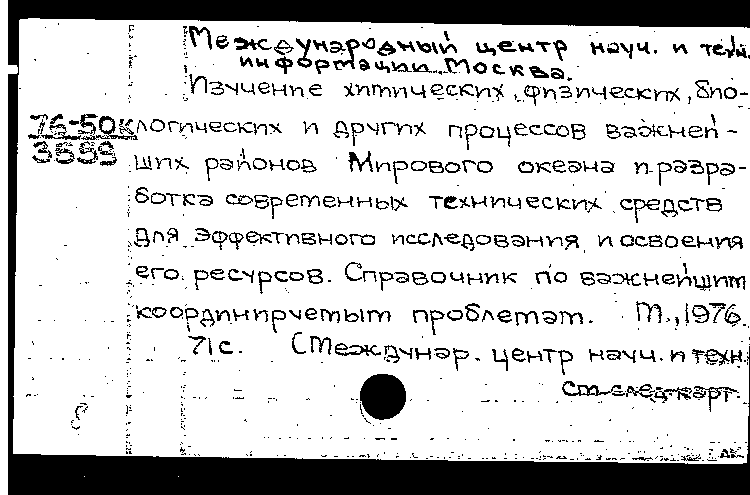 Международный центр науч. и техн.
информации. Москва.
Изучение химических, физических, био-
76-50к
3559
логических и других процессов важней-
ших районов Мирового океана и разра-
ботка современных технических средств
для эффективного исследования и освоения
его ресурсов. Справочник по важнейшим
координируемым проблемам. М., 1976.
71с. (Междунар. центр науч. и техн.
См. след. карт.